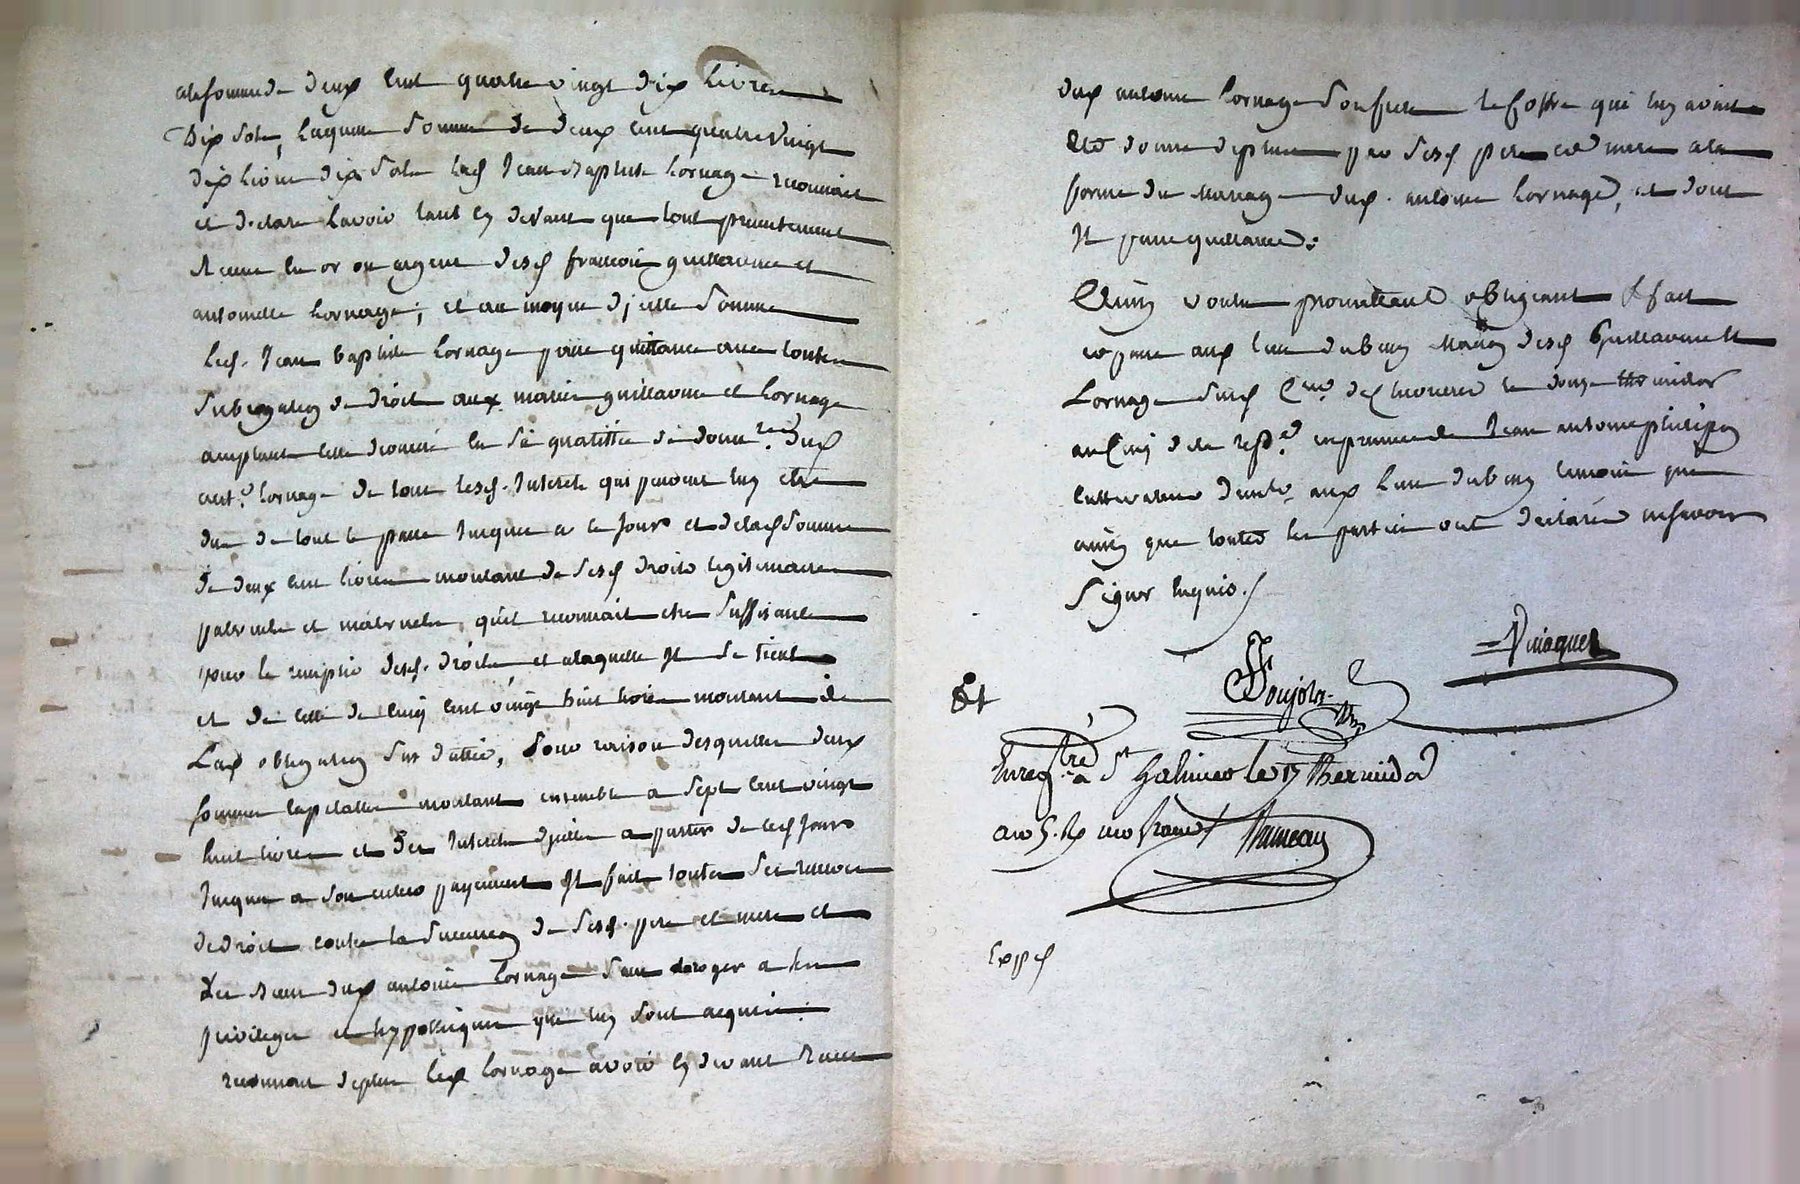 alasomme de deux cent quatre vingt dix livres
Dix sols, laquelle somme de deux cent quatre vingt
dix livres dix sols led Jean Baptiste Lornage reconnait
et declare lavoir tant cy devant que tout presentement
Receue en or ou argent desd francois guillaume et
antoinette Lornage; et au moyen d'jcelle somme
Led. Jean baptiste Lornage passe quittance avec toutte
subrogation de droit aux mariés guillaume et Lornage
acceptant cette derniere en sa qualitté de donnre. dud
ant.e Lornage de tous lesd. Interets qui peuvent luy etre
dus de tout le passé Jusques a ce Jour et delad somme
de deux cent livres montant de sesd droits legitimaires
paternels et maternels, qu'il reconnait etre suffisante
pour le desd. droits, et alaquelle Il se tient
et de celle de cinq cent vingt huit livres montant de
Lad obligation sus dattée, pour raison desquelles deux
sommes capitalles montant ensemble a sept cent vingt
huit livres et des Interets d'jcelles a partir de cejourd
Jusques a son entier payement Il fait toutes ses reserves
de droit contre la succession de sesd. pere et mere et
des biens dud antoine Lornage sans deroger a ses
privileges et hypotheques que luy sont acquis:
reconnait deplus led Lornage avoir cy devant Receu
dud antoine Lornage son frere le coffre qui luy avoit
Eté donné deplus par sesd pere et mere a la
forme du Mariage dud. antoine Lornage, et dont
Il passe quittance:
Ainsi voulu promettant obligeant & fait
et passé aux lieu dubuy Maison desd Guillaume &
Lornage susd le douze thermidor
an cinq de la rep.e en presence de Jean antoine philipon
cultivateur aux lieu dubuy temoin que
ainsy que touttes les parties ont declaré ne savoir
signer enquis.
Poujola
Enregtré a St Galmier le 17 Thermidor
an 5. R un franc
Expd